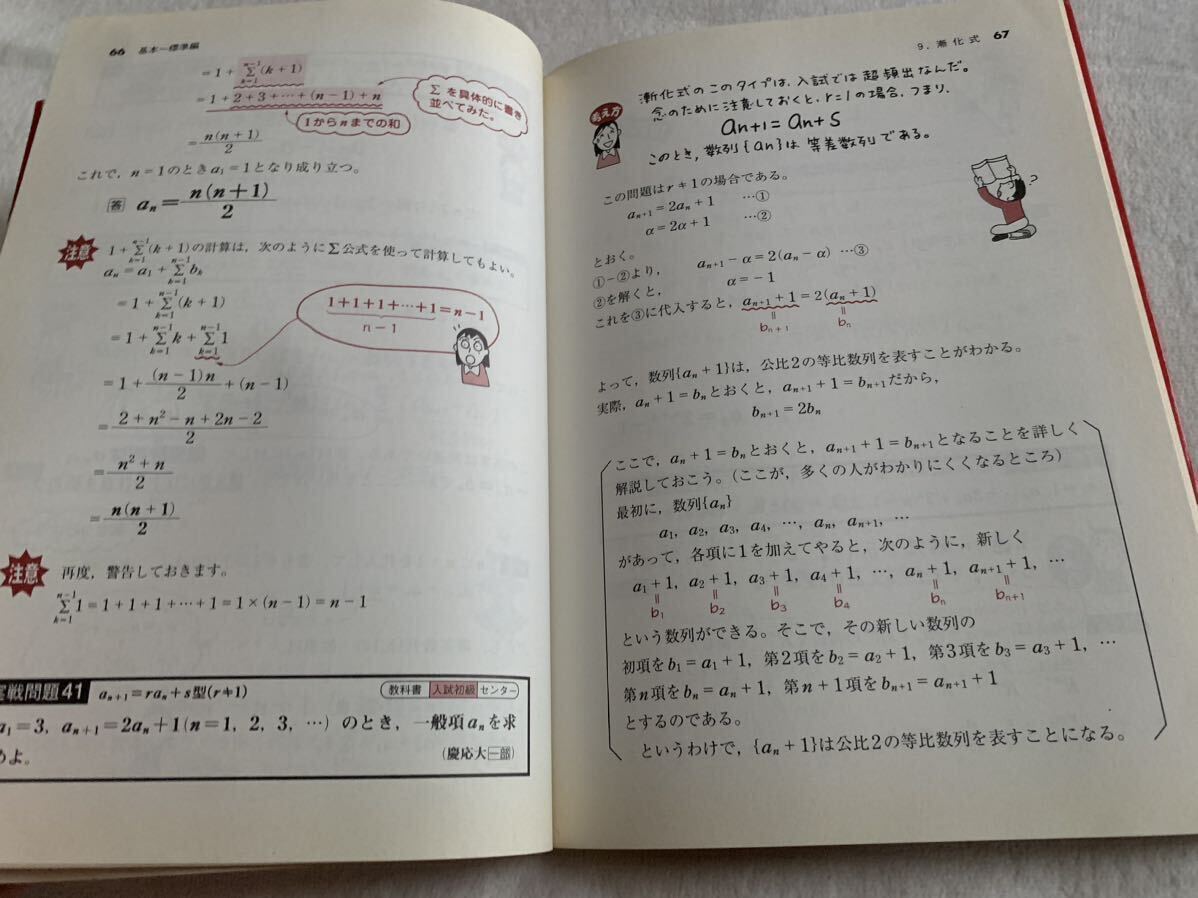 66 基本～標準編
=1+∑_{k=1}^{n-1}(k+1)
=1+2+3+…+(n-1)+n
∑を具体的に書き
並べてみた。
1からnまでの和
=n(n+1)/2
これで，n=1のときa₁=1となり成り立つ。
答 aₙ=n(n+1)/2
注意 1+∑_{k=1}^{n-1}(k+1)の計算は，次のように∑公式を使って計算してもよい。
aₙ=a₁+∑_{k=1}^{n-1}bₖ
=1+∑_{k=1}^{n-1}(k+1)
1+1+1+…+1=n-1
n-1
=1+∑_{k=1}^{n-1}k+∑_{k=1}^{n-1}1
=1+(n-1)n/2+(n-1)
=2+n²-n+2n-2/2
=n²+n/2
=n(n+1)/2
注意 再度，警告しておきます。
∑_{k=1}^{n-1}1=1+1+1+…+1=1×(n-1)=n-1
実戦問題41 aₙ₊₁=raₙ+s型(r≠1) 教科書 入試初級 センター
a₁=3, aₙ₊₁=2aₙ+1(n=1, 2, 3, …) のとき，一般項aₙを求
めよ。 (慶応大一部)
9. 漸化式 67
考え方
漸化式のこのタイプは，入試では超頻出なんだ。
念のために注意しておくと，r=1の場合，つまり，
aₙ₊₁=aₙ+s
このとき，数列{aₙ}は等差数列である。
?
この問題はr≠1の場合である。
aₙ₊₁=2aₙ+1 …①
α=2α+1 …②
とおく。
①-②より， aₙ₊₁-α=2(aₙ-α) …③
②を解くと， α=-1
これを③に代入すると，aₙ₊₁+1=2(aₙ+1)
= =
bₙ₊₁ bₙ
よって，数列{aₙ+1}は，公比2の等比数列を表すことがわかる。
実際，aₙ+1=bₙとおくと，aₙ₊₁+1=bₙ₊₁だから，
bₙ₊₁=2bₙ
ここで，aₙ+1=bₙとおくと，aₙ₊₁+1=bₙ₊₁となることを詳しく
解説しておこう。(ここが，多くの人がわかりにくくなるところ)
最初に，数列{aₙ}
a₁, a₂, a₃, a₄, …, aₙ, aₙ₊₁, …
があって，各項に1を加えてやると，次のように，新しく
a₁+1, a₂+1, a₃+1, a₄+1, …, aₙ+1, aₙ₊₁+1, …
= = = = = =
b₁ b₂ b₃ b₄ bₙ bₙ₊₁
という数列ができる。そこで，その新しい数列の
初項をb₁=a₁+1，第2項をb₂=a₂+1，第3項をb₃=a₃+1，…
第n項をbₙ=aₙ+1，第n+1項をbₙ₊₁=aₙ₊₁+1
とするのである。
というわけで，{aₙ+1}は公比2の等比数列を表すことになる。